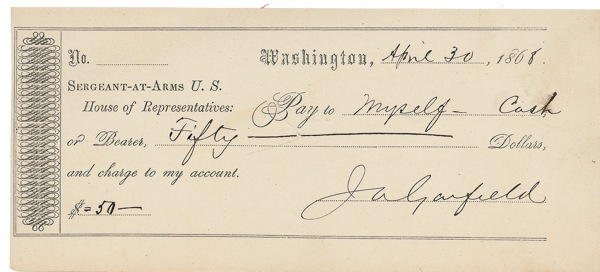 No. Washington, April 30, 1868.
SERGEANT-AT-ARMS U. S.
House of Representatives: Pay to Myself - Cash
or Bearer, Fifty Dollars,
and charge to my account.
$ = 50 — J A Garfield